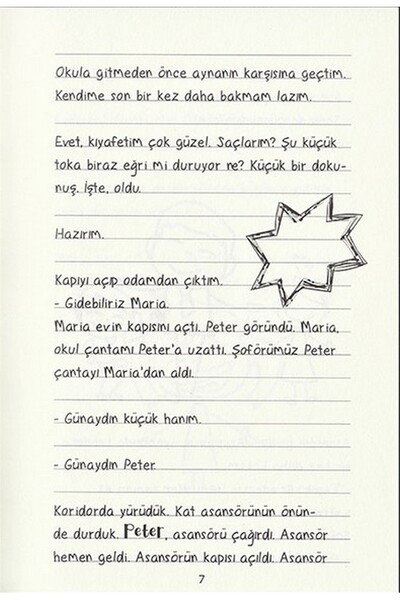 Okula gitmeden önce aynanın karşısına geçtim.
Kendime son bir kez daha bakmam lazım.
Evet, kıyafetim çok güzel. Saçlarım? Şu küçük
toka biraz eğri mi duruyor ne? Küçük bir doku-
nuş. İşte, oldu.
Hazırım.
Kapıyı açıp odamdan çıktım.
- Gidebiliriz Maria.
Maria evin kapısını açtı. Peter göründü. Maria,
okul çantamı Peter'a uzattı. Şoförümüz Peter
çantayı Maria'dan aldı.
- Günaydın küçük hanım.
- Günaydın Peter.
Koridorda yürüdük. Kat asansörünün önün-
de durduk. Peter, asansörü çağırdı. Asansör
hemen geldi. Asansörün kapısı açıldı. Asansör
7